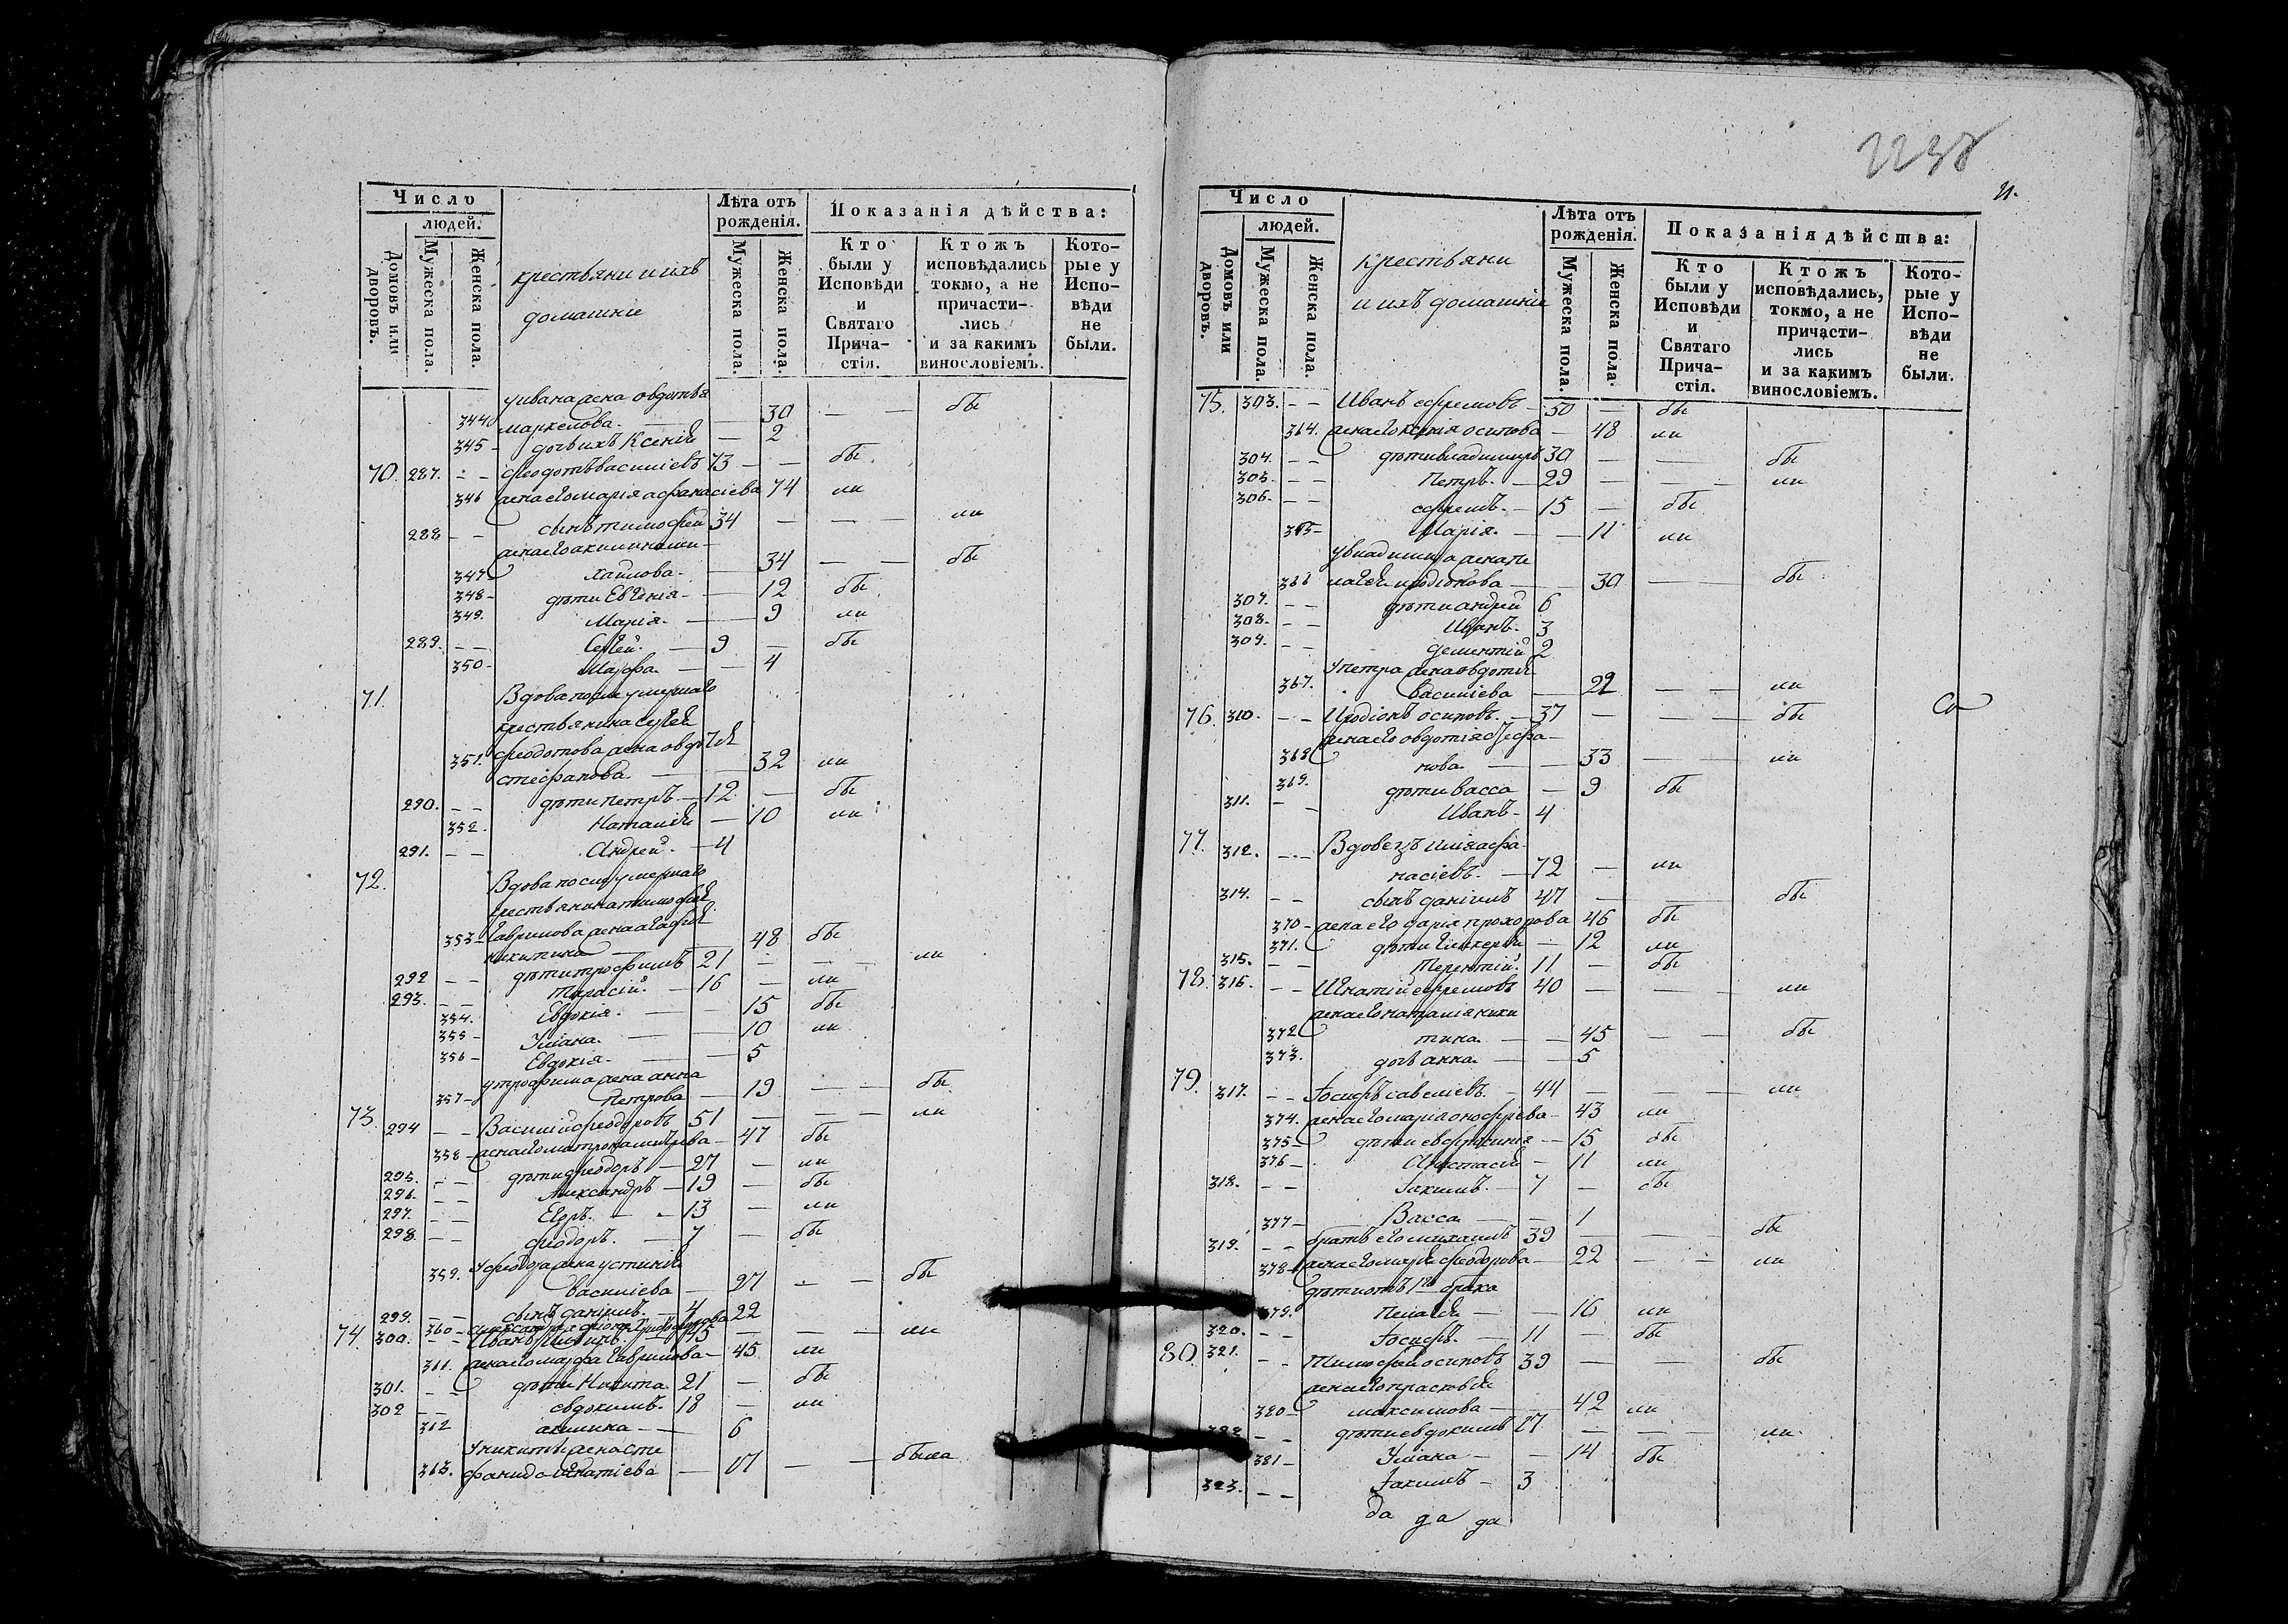 Число
людей.
Домовъ или дворовъ.
Мужеска пола.
Женска пола.
крестьяни и ихъ
домашніе
Лѣта отъ рожденія.
Мужеска пола.
Женска пола.
Показанія дѣйства:
Кто были у Исповѣди и Святаго Прича-стія.
Ктожъ исповѣдались токмо, а не причасти-лись и за какимъ винословіемъ.
Кото-рые у Испо-вѣди не были.
у ивана жена овдотья
344 маркелова. — 30 — — бы
345 - дочь ихъ Ксенія — 2
70. 287. - - феодотъ василіевъ 73 — — бы
346 жена его марія афанасіева 74 ли
288 - - сынъ тимофей 34 — — — ли
жена его акилина ми-
347 - хаилова. — 34 — — бы
348 - дѣти Евгенія. — 12 бы
349. Марія. — 9 ли
289. - - Сергей. — 9 — бы
350 - Марфа. — — 4
71. Вдова после умершаго
крестьянина сергея
351. феодотова жена
стефанова. — 32 ли
290. - - дѣти петръ — 12 — бы
352. Наталія — 10 ли
291. - - Андрей. — 4
72. Вдова после умершаго
крестьянина тимофея
353 - гаврилова жена агафія
никитина — 48 бы
292 - - дѣти трофимъ 21 — — — ли
293. - - Тарасій. — 16 — ли
354. Евдокія. — — 15 бы
355 - Уліана. — — 10 ли
356 - Евдокія. — — 5
у трофима жена анна
357 - Петрова — 19 — — бы
73. 294 - - Василий феодоровъ 51 — — — ли
358 - жена его матрона — 47 бы
295. - - дѣти феодоръ — 27 — ли
296. - - Александръ — 19 — бы
297. - - Егоръ. — 13 — ли
298. - - феодоръ. — 7 — бы
у феодора жена устинія
359. василіева — 27 — — бы
299. - - сынъ данилъ. — 4
360 - 22
74. 300. - - Иванъ 45 — — — ли
361. жена его марфа гаврилова — 45 ли
301. - - дѣти Никита 21 — бы
302 - - евдокимъ. 18 — ли
362 акилина — — 6
У никиты жена сте
363. фанида игнатіева — 17 — — была
2238
21.
Число
людей.
Домовъ или дворовъ.
Мужеска пола.
Женска пола.
крестьяни
и ихъ домашніе
Лѣта отъ рожденія.
Мужеска пола.
Женска пола.
Показанія дѣйства:
Кто были у Исповѣди и Святаго Прича-стія.
Ктожъ исповѣдались, токмо, а не причасти-лись и за какимъ винословіемъ.
Кото-рые у Испо-вѣди не были.
75. 303. - - Иванъ ефремовъ — 50 — бы
364. жена его ксенія осипова — 48 ли
304. - - дѣти владимиръ 30 — — бы
305. - - Петръ. — 29 — — ли
306. - - ефремъ. — 15 — бы
365 - Марія. — — 11 ли
у владимира жена пе
366 лагея иродіонова — 30 — бы
307. - - дѣти андрей 6
308. - - Иванъ. 3
309. - - дементий 2
У петра жена овдотія
367. василіева — 22 — — ли
76. 310. - - Иродіонъ осиповъ. — 37 — — — бы
жена его овдотія стефа-
368 нова — — 33 — ли
369. дѣти васса — 9 бы
311. - - Иванъ — 4
77. 312. - - Вдовецъ илія афа-
насіевъ. — 72 — ли
314. - - сынъ данилъ 47 — — бы
370 - жена его дарія прохорова 46 бы
371. дѣти гликерія — 12 ли
315. - - Терентій. 11 — бы
78. 316. - - Игнатій ефремовъ 40 — — — ли
жена его наталія ники
372 тина. — — 45 — — бы
373. дочь анна. — — 5
79. 317. - - Іосифъ савеліевъ. — 44 — — — ли
374. жена его марія онофріева — 43 ли
375 - дѣти евфросинія — 15 бы
376 - Анастасія — 11 ли
318. - - Іакимъ. — 7 — бы
377 - Васса — — 1
319. - - братъ его михаилъ 39 — — — бы
378 - жена его марія феодорова — 22 — — ли
дѣти отъ 1го брака
379. Пелагея — — 16 ли
320. - - Іосифъ. — 11 — бы
80. 321. - - Тимофей осиповъ 39 — — бы
жена его прасковія
380 - максимова — — 42 ли
322 - - дѣти евдокимъ 17 — — — ли
381 - Уліана — — 14 бы
323. - - Іакимъ — 3
да да да